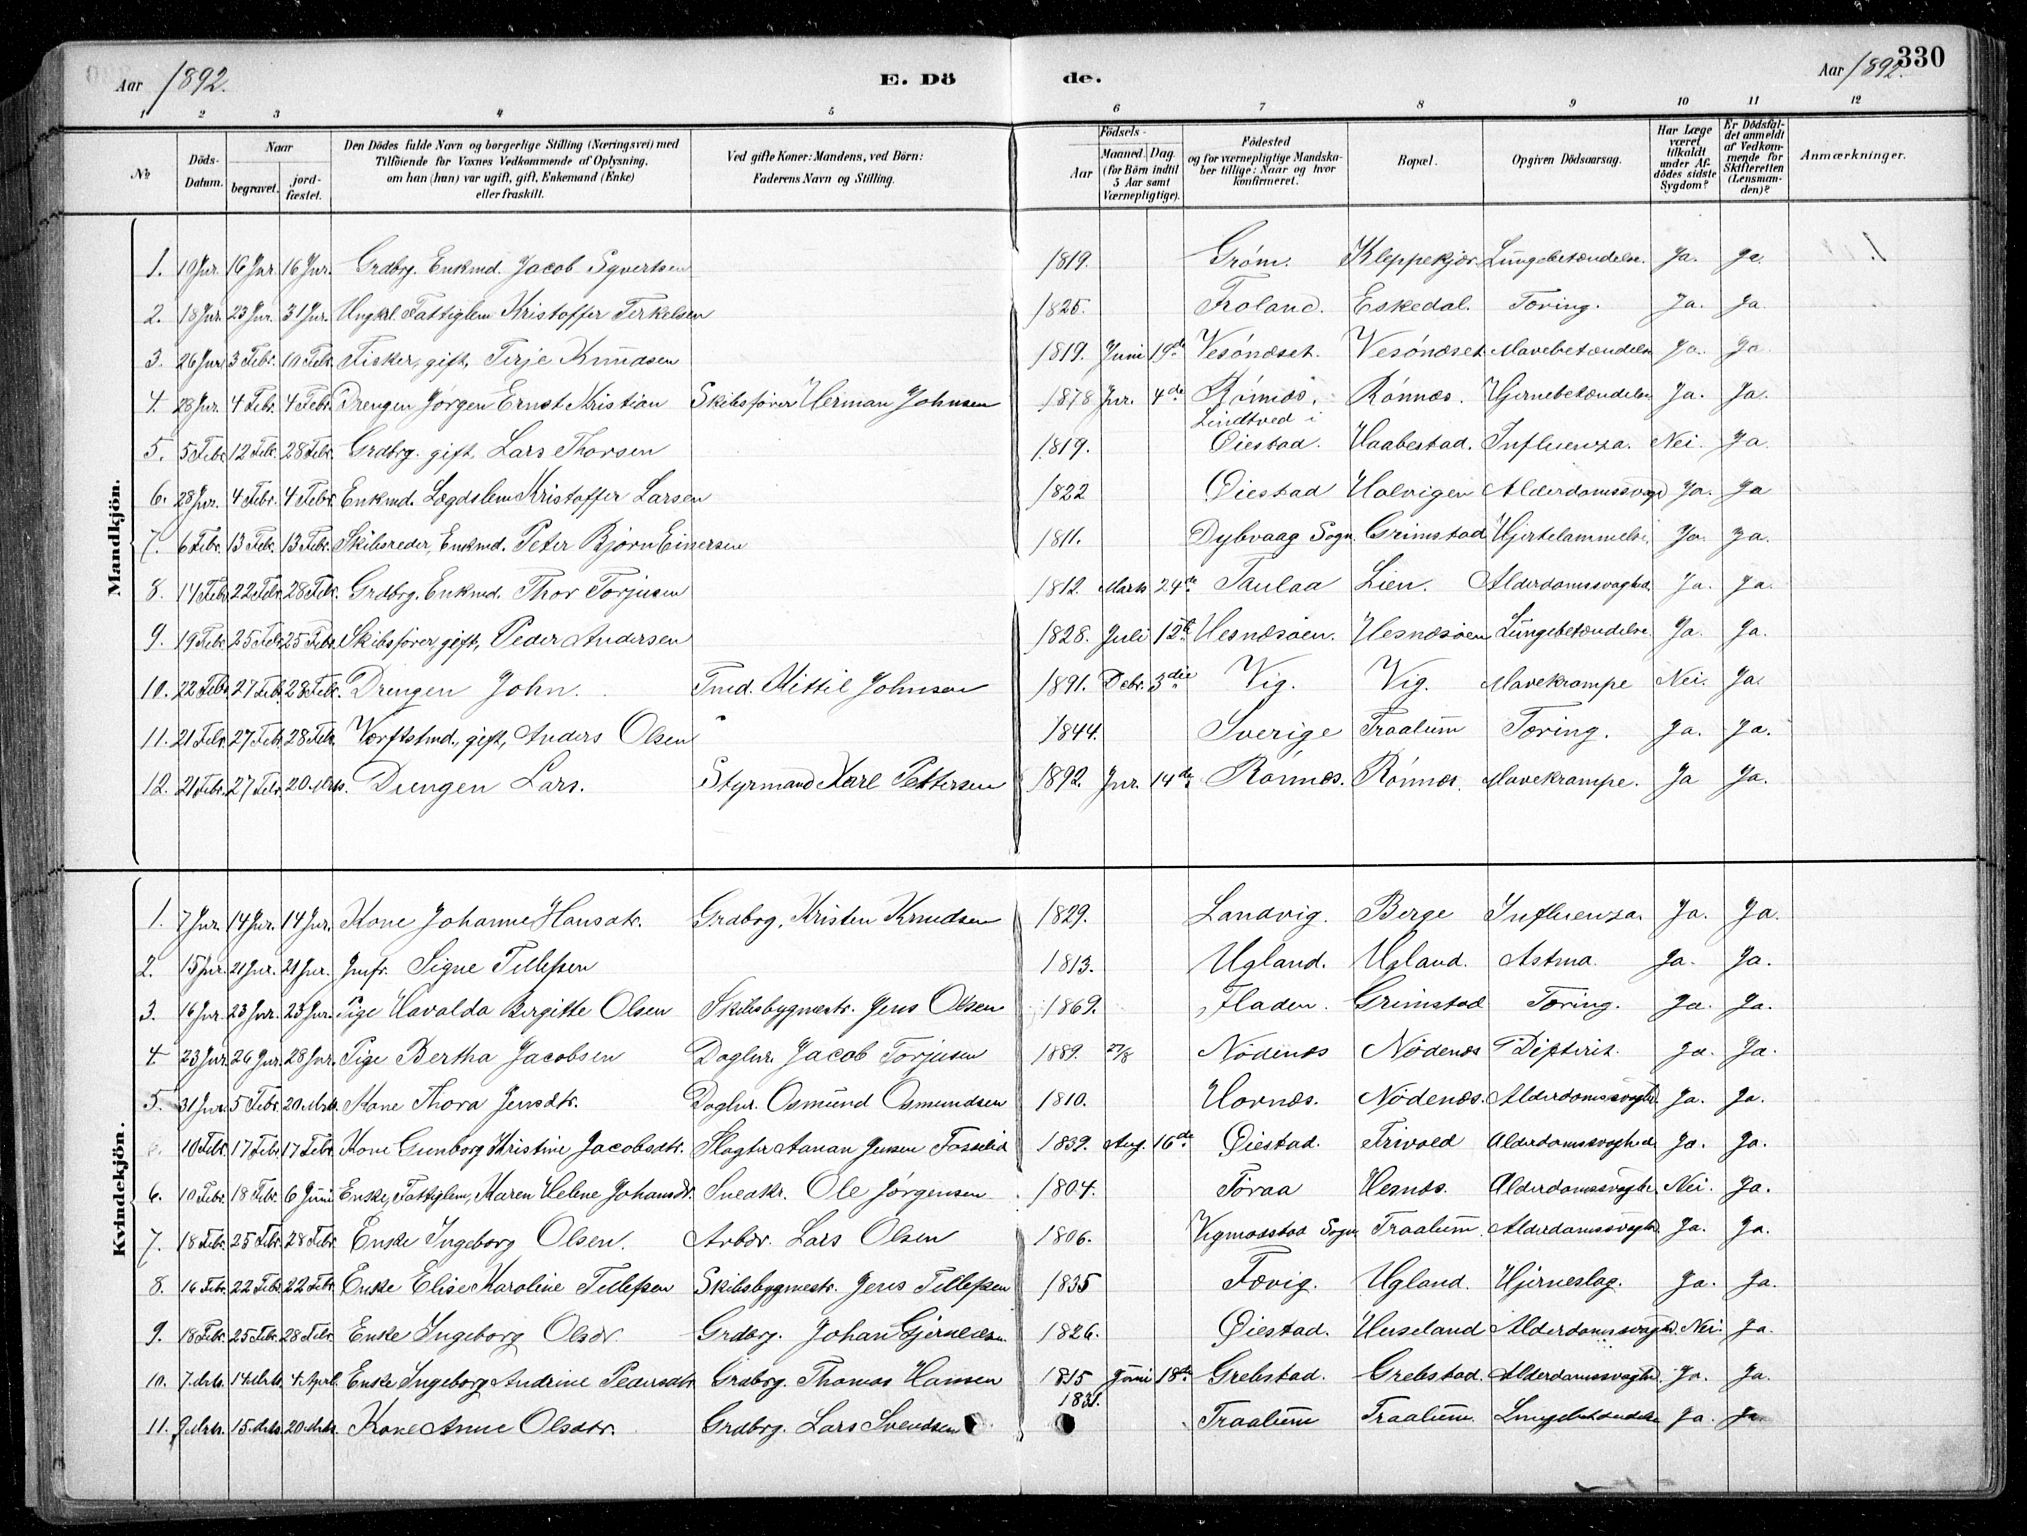 Aar 1892. E. Dö de. Aar 1892. 330
1 2 3 4 5 6 7 8 9 10 11 12
№ Döds-Datum. Naar begravet. jordfæstet. Den Dödes fulde Navn og borgerlige Stilling (Næringsvei) med Tilföiende for Voxnes Vedkommende af Oplysning, om han (hun) var ugift, gift, Enkemand (Enke) eller fraskilt. Ved gifte Koner: Mandens, ved Börn: Faderens Navn og Stilling. Födsels- Aar Maaned. Dag. (for Börn indtil 5 Aar samt Værnepligtige). Födested og for værnepligtige Mandskaber tillige: Naar og hvor konfirmeret. Bopæl. Opgiven Dödsaarsag. Har Læge været tilkaldt under Afdödes sidste Sygdom? Er Dödsfaldet anmeldt af Vedkommende for Skifteretten (Lensmanden)? Anmærkninger.
Mandkjön.
1. 10 Jnr. 16 Jnr. 16 Jnr. Grdbrg. Enkmd. Jacob Syvertsen 1819. Grøm. Kleppekjær. Lungebetændelse. Ja. Ja.
2. 18 Jnr. 23 Jnr. 31 Jnr. Ungkl. Fattiglem Kristoffer Terkelsen 1825. Froland. Eskedal. Tæring. Ja. Ja
3. 26 Jnr. 3 Febr. 10 Feb. Fisker, gift, Terje Knudsen 1819. Juni 19de Vesønæset. Vesønæset Mavebetændelse Ja. Ja
4. 28 Jnr. 4 Febr. 4 Febr. Drengen Jørgen Ernst Kristian Skibsfører Herman Johnsen 1878 Jnr. 4de Rønnes. Rønnæs. Hjernebetændelse Ja. Ja.
5. 5 Febr. 12 Feb. 28 Febr. Grdbrg. gift, Lars Thorsen 1819. Lindtved i Øiestad. Haabestad. Influenza. Nei. Ja
6. 28 Jnr. 4 Febr. 4 Febr. Enkmd. Lægdslem Kristoffer Larsen 1822 Øiestad Holvigen Alderdomssvagd Ja. Ja
7. 6 Febr. 13 Feb. 13 Feb. Skibsreder, Enkmd. Peter Bjørn Einersen 1811. Dybvaag Sogn. Grimstad Hjertelammelse. Ja. Ja.
8. 14 Febr. 22 Febr. 28 Feb. Grdbrg. Enkmd. Thor Torjusen 1812. Marts 24de Taulaa Lien. Alderdomssvaghed. Ja. Ja.
9. 19 Feb. 25 Feb. 25 Febr. Skibsfører, gift, Peder Andersen 1828. Juli 12te Hesnæsøen. Hesnæsøen Lungebetændelse. Ja. Ja.
10. 22 Febr. 27 Feb. 28 Feb. Drengen John. Tmd. Kittil Johnsen 1891. Dcbr. 3die Vig. Vig. Mavekrampe Nei. Ja.
11. 21 Febr. 27 Feb. 28 Feb. Værftstmd., gift, Anders Olsen 1844. Sverige Traalum Tæring. Ja. Ja.
12. 21 Febr. 27 Febr. 20 Mrts. Drengen Lars. Styrmand Karl Pettersen 1892. Jnr. 14de Rønnes. Rønnes. Mavekrampe. Ja Ja.
Kvindekjön.
1. 7 Jnr. 14 Jnr. 14 Jnr. Kone Johanne Hansdtr. Grdbrg. Kristen Knudsen 1829. Landvig. Berge Influenza. Ja. Ja.
2. 15 Jnr. 21 Jnr. 21 Jnr. Jmfr. Signe Tellefsen 1813. Ugland. Ugland. Astma. Ja. Ja.
3. 16 Jnr. 23 Jnr. 23 Jnr. Pige Havalda Birgitte Olsen Skibsbygmestr. Jens Olsen 1869. Fladen. Grimstad Tæring. Ja. Ja.
4 23 Jnr. 26 Jnr. 28 Jnr. Pige Bertha Jacobsen Daglnr. Jacob Torjusen 1889. 27/8 Nødenes Nødenes Difterit. Ja. Ja.
5. 31 Jnr. 5 Febr. 20 Mrts. Kone Thora Jensdtr. Daglnr. Osmund Osmundsen 1810. Hornes. Nødenes. Alderdomssvaghd. Ja. Ja.
10 Febr. 17 Febr. 17 Febr. Kone Gunborg Kristine Jacobsdtr. Slagter Aanan Jensen Fosselid 1839. Aug. 16de Øiestad. Frivold Alderdomssvaghed Ja. Ja.
6. 10 Febr. 18 Febr. 6 Juni Enke, Fattiglem, Karen Helene Johansdr. Snedkr. Ole Jørgensen 1804. Foraa Hesnes. Alderdomssvaghd. Nei. Ja.
7. 18 Febr. 25 Febr. 28 Febr. Enke Ingeborg Olsen. Arbdr. Lars Olsen 1806. Vigmostad Sogn Traalum. Alderdomssvaghed Ja. Ja.
8. 16 Febr. 22 Febr. 22 Febr. Enke Elise Karoline Tellefsen Skibsbygmestr. Jens Tellefsen 1835 Fævig. Ugland. Hjerneslag. Ja. Ja.
9. 18 Febr. 25 Febr. 28 Febr. Enke Ingeborg Olsdr. Grdbrg. Johan Gjeruldsen. 1826. Øiestad. Herseland Alderdomssvaghd. Nei. Ja.
10. 7 Mrts. 14 Mrts. 4 April. Enke Ingeborg Andrine Pedersdtr. Grdbrg. Thomas Hansen 1815 Juni 18de Grebstad. Grebstad. Alderdomssvaghd. Ja. Ja.
11. 9 Mrts. 15 Mrts. 20 Mrts. Kone Anne Olsdtr. Grdbrg. Lars Svendsen 1831. Traalum Traalum. Lungebetændelse Ja. Ja